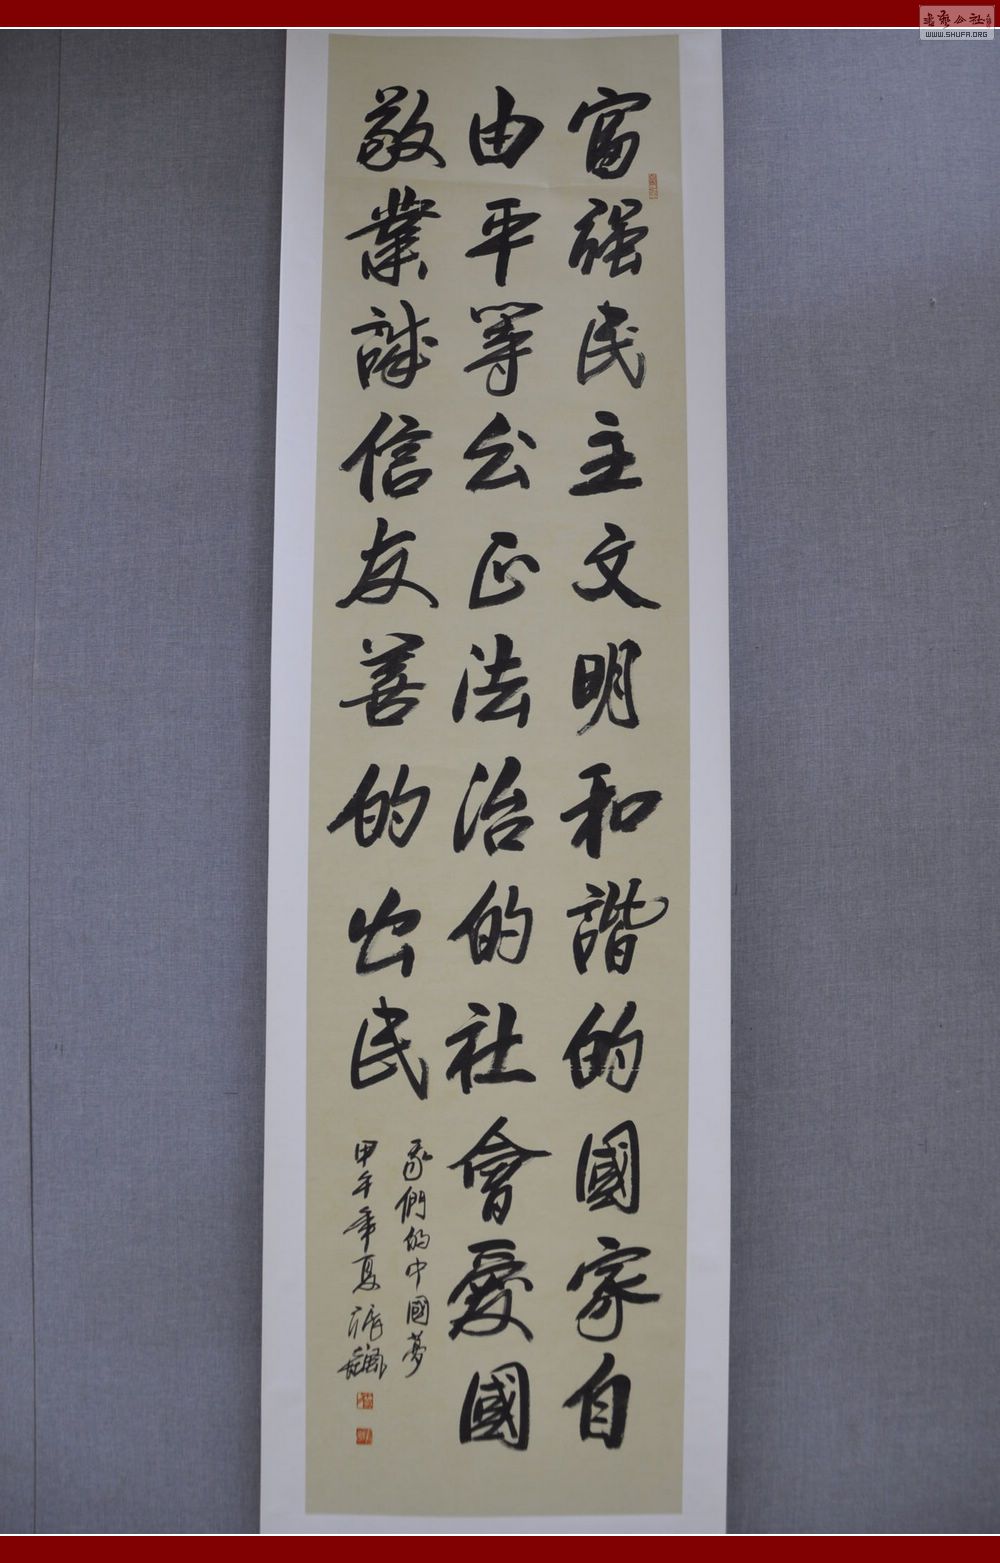 富強民主文明和諧的國家自
由平等公正法治的社會愛國
敬業誠信友善的公民
我們的中國夢
甲午年夏
WWW.SHUFA.ORG